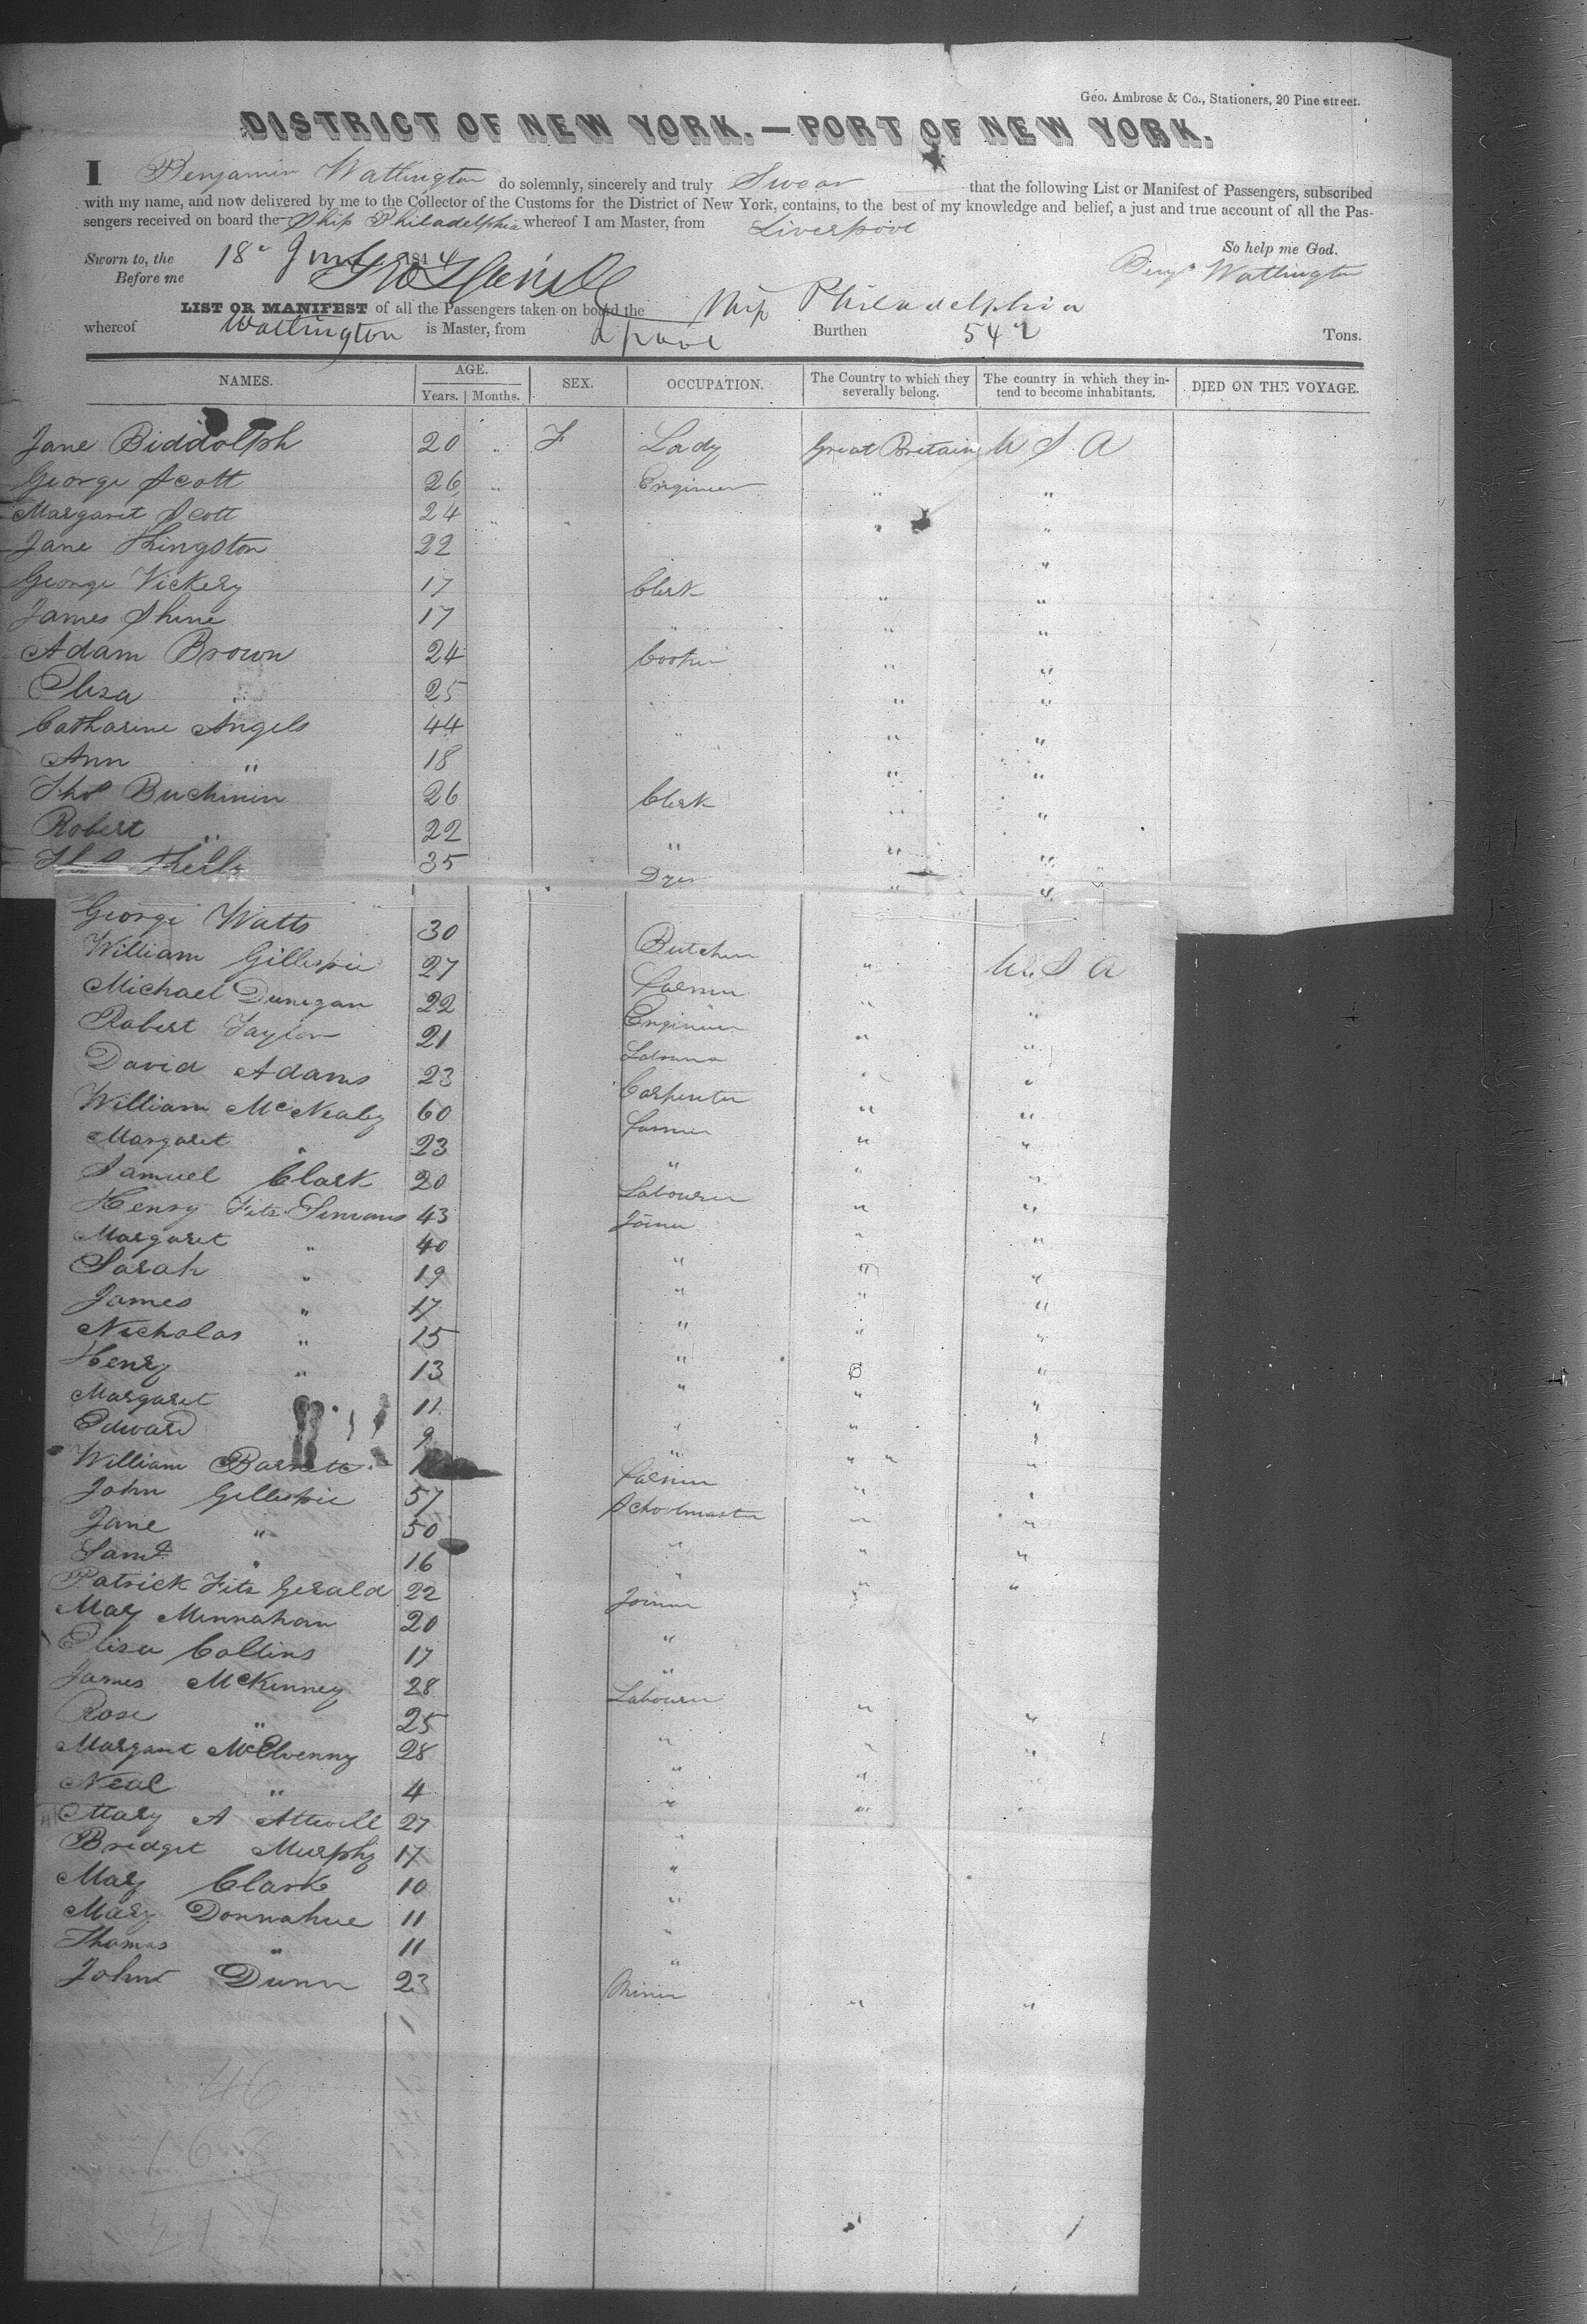 Geo. Ambrose & Co., Stationers, 20 Pine street.
DISTRICT OF NEW YORK.—PORT OF NEW YORK.
I Benjamin Watlington do solemnly, sincerely and truly Swear that the following List or Manifest of Passengers, subscribed
with my name, and now delivered by me to the Collector of the Customs for the District of New York, contains, to the best of my knowledge and belief, a just and true account of all the Pas-
sengers received on board the Ship Philadelphia whereof I am Master, from Liverpool
So help me God.
Sworn to, the 18 June 1844
Before me
Benj Watlington
LIST OR MANIFEST of all the Passengers taken on board the Ship Philadelphia
whereof Watlington is Master, from Lpool Burthen 542 Tons.
NAMES. AGE. Years. Months. SEX. OCCUPATION. The Country to which they severally belong. The country in which they intend to become inhabitants. DIED ON THE VOYAGE.
Jane Biddolph 20 " F Lady Great Britain U S A
George Scott 26 " Engineer " "
Margaret Scott 24 " " " "
Jane Kingston 22 "
George Vickery 17 Clerk " "
James Shine 17 " " "
Adam Brown 24 " "
Eliza " 25 " "
Catharine Angels 44 " " "
Ann " 18 " "
Thos Buchmin 26 Clerk " "
Robert " 22 " " "
Thos Kelly 35 Dyer " "
George Watts 30 Butcher "
William Gillespie 27 Farmer " U S A
Michael Dunigan 22 Engineer " "
Robert Taylor 21 " "
David Adams 23 Carpenter " "
William McNealey 60 Farmer " "
Margaret " 23 " " "
Samuel Clark 20 Labourer " "
Henry Fitz Simons 43 Joiner " "
Margaret " 40 " " "
Sarah " 19 " " "
James " 17 " " "
Nicholas " 15 " " "
Henry " 13 " "
Margaret " 11 " " "
Edward 9 " " "
William Barrett Farmer " "
John Gillespie 57 Schoolmaster " "
Jane " 50 " " "
Saml " 16 " " "
Patrick Fitz Gerald 22 Joiner "
Mary Minnahan 20 "
Eliza Collins 17 "
James McKinney 28 Labourer " "
Rose " 25 " " "
Margaret McElvenny 28 " "
Neal " 4 " "
Mary A Attwill 27 "
Bridget Murphy 17 "
Mary Clark 10 "
Mary Donnahue 11 "
Thomas " 11 "
John Dunn 23 Miner " "
46